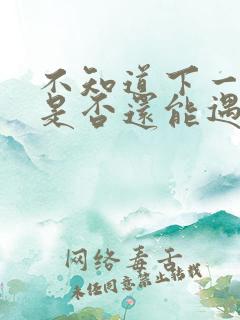 不知道下一
是否還能遇
网络毒舌
未经同意禁止转载